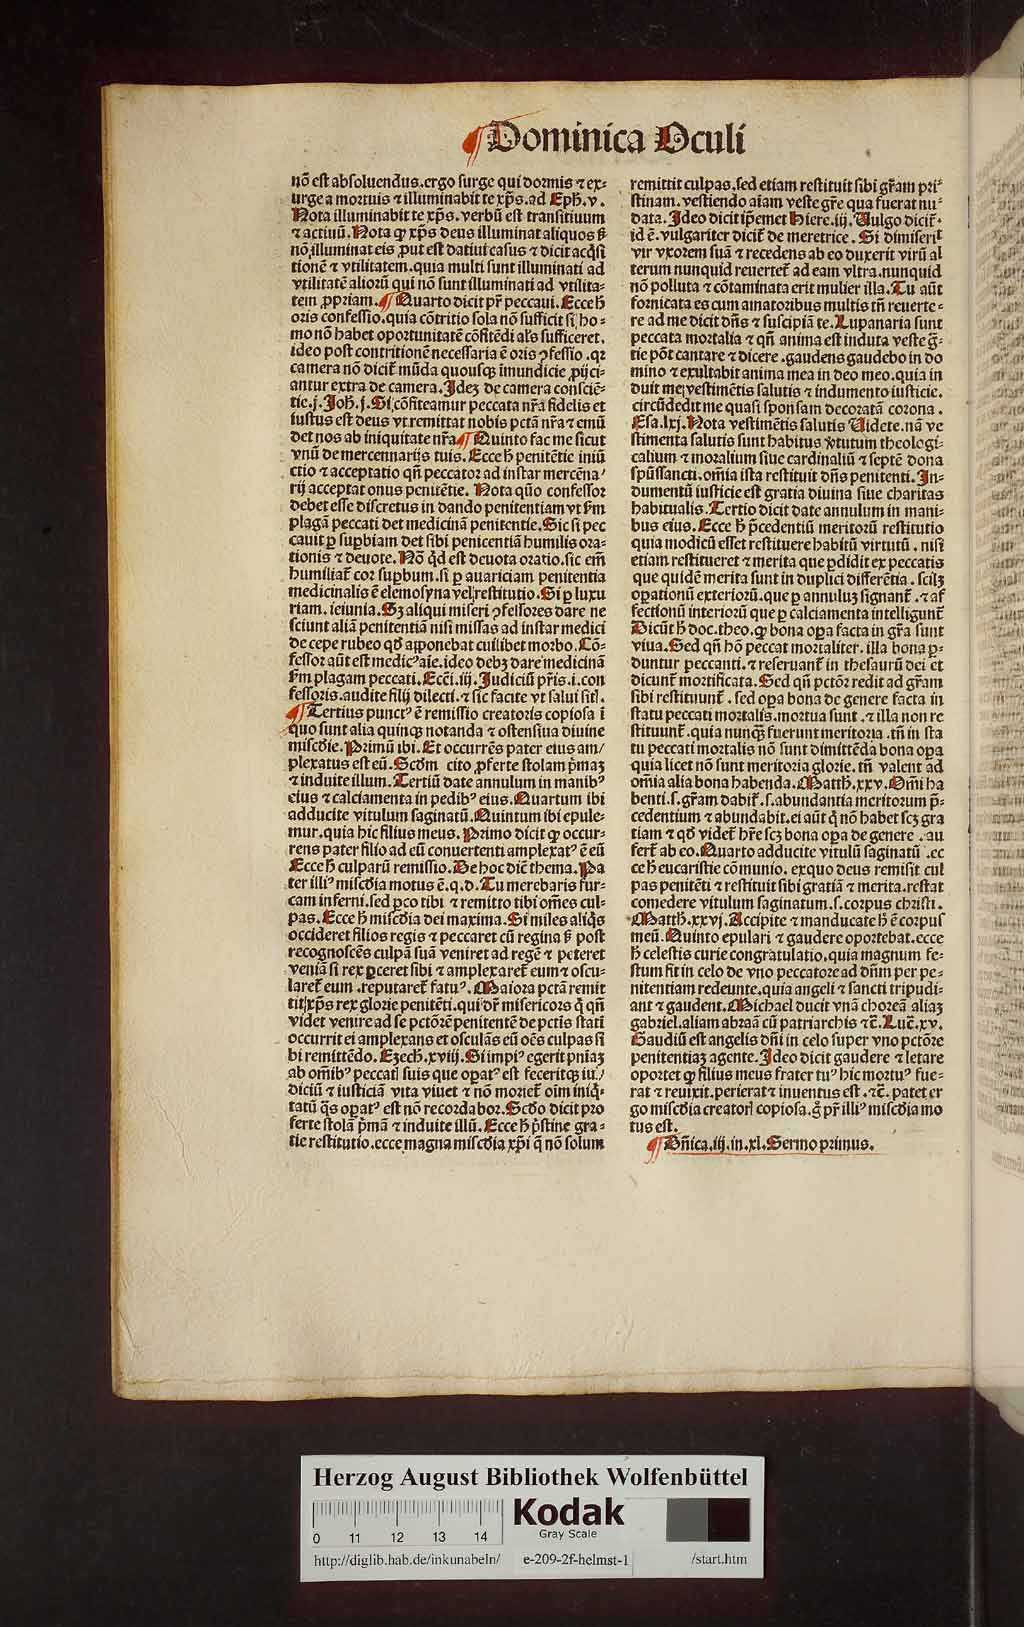 ¶ Dominica Oculi
nō est absoluendus.ergo surge qui dormis ⁊ ex-
urge a mortuis ⁊ illuminabit te xp̄s.ad Eph̄.v.
Nota illuminabit te xp̄s. verbū est transitiuum
⁊ actiuū. Nota ꝙ xp̄s deus illuminat aliquos sꝫ
nō illuminat eis ꝓut est datiui casus ⁊ dicit acq̄si
tionē ⁊ vtilitatem.quia multi sunt illuminati ad
vtilitatē aliorū qui nō sunt illuminati ad vtilita-
tem ꝓpriam. ¶ Quarto dicit pr̄ peccaui. Ecce h̄
oris confessio.quia cōtritio sola nō sufficit si ho-
mo nō habet oportunitatē cōfitēdi al's sufficeret.
ideo post contritionē necessaria ē oris ꝯfessio .qꝛ
camera nō dicit̄ mūda quousqꝫ īmundicie ꝓijci-
antur extra de camera. Ideꝫ de camera consciē-
tie.j. Joh̄.j. Si cōfiteamur peccata nr̄a fidelis et
iustus est deus vt remittat nobis pctā nr̄a ⁊ emū
det nos ab iniquitate nr̄a ¶ Quinto fac me sicut
vnū de mercennarijs tuis. Ecce h̄ penitētie iniū
ctio ⁊ acceptatio qn̄ peccator ad instar mercēna/
rij acceptat onus penitētie. Nota quō confessor
debet esse discretus in dando penitentiam vt s̄m
plagā peccati det medicinā penitentie. Sic si pec
cauit ꝑ supbiam det sibi penicentiā humilis ora-
tionis ⁊ deuote. Nō qd̄ est deuota oratio.sic em̄
humiliat̄ cor supbum.si ꝑ auariciam penitentia
medicinalis ē elemosyna vel restitutio. Si ꝑ luxu
riam. ieiunia. Sꝫ aliqui miseri ꝯfessores dare ne
sciunt aliā penitentiā nisi missas ad instar medici
de cepe rubeo qd̄ apponebat cuilibet morbo. Cō-
fessor aūt est medicꝰ aīe.ideo debꝫ dare medicinā
s̄m plagam peccati. Ecc̄i.iij. Judiciū pr̄is.i.con
fessoris.audite filij dilecti.⁊ sic facite vt salui sitꝭ.
¶ Tertius punctꝰ ē remissio creatoris copiosa ī
quo sunt alia quinqꝫ notanda ⁊ ostensiua diuine
miscd̄ie. Primū ibi. Et occurrēs pater eius am/
plexatus est eū. Scd̄m cito ꝓferte stolam p̄maꝫ
⁊ induite illum. Tertiū date annulum in manibꝰ
eius ⁊ calciamenta in pedibꝰ eius. Quartum ibi
adducite vitulum saginatū. Quintum ibi epule-
mur.quia hic filius meus. Primo dicit ꝙ occur-
rens pater filio ad eū conuertenti amplexatꝰ ē eū
Ecce h̄ culparū remissio. De hoc diē thema. Pa
ter illiꝰ miscd̄ia motus ē.q.d. Tu merebaris fur-
cam inferni.sed ꝑco tibi ⁊ remitto tibi om̄es cul-
pas. Ecce h̄ miscd̄ia dei maxima. Si miles aliq̄s
occideret filios regis ⁊ peccaret cū regina sꝫ post
recognoscēs culpā suā veniret ad regē ⁊ peteret
veniā si rex ꝑceret sibi ⁊ amplexaret̄ eum ⁊ oscu-
laret̄ eum .reputaret̄ fatuꝰ. Maiora pctā remit
tit xp̄s rex glorie penitēti.qui dr̄ misericors q̄ qn̄
videt venire ad se pctōrē penitentē de pctis statī
occurrit ei amplexans et osculās eū oēs culpas si
bi remittēdo. Ezech̄.xviij. Si impiꝰ egerit pn̄iaꝫ
ab om̄ibꝰ peccatꝭ suis que opatꝰ est feceritqꝫ iu/
diciū ⁊ iusticiā vita viuet ⁊ nō moriet̄ oīm iniq̄-
tatū q̄s opatꝰ est nō recordabor. Scd̄o dicit pro
ferte stolā p̄mā ⁊ induite illū. Ecce h̄ p̄stine gra-
tie restitutio.ecce magna miscd̄ia xp̄i q̄ nō solum
remittit culpas.sed etiam restituit sibi gr̄am pri-
stinam.vestiendo aīam veste gr̄e qua fuerat nu-
data. Ideo dicit ip̄emet Hiere.iij. Uulgo dicit̄.
id ē.vulgariter dicit̄ de meretrice. Si dimiserit
vir vxorem suā ⁊ recedens ab eo duxerit virū al
terum nunquid reuertet̄ ad eam vltra.nunquid
nō polluta ⁊ cōtaminata erit mulier illa. Tu aūt
fornicata es cum amatoribus multis tn̄ reuerte-
re ad me dicit dn̄s ⁊ suscipiā te. Lupanaria sunt
peccata mortalia ⁊ qn̄ anima est induta veste gr̄-
tie pōt cantare ⁊ dicere .gaudens gaudebo in do
mino ⁊ exultabit anima mea in deo meo.quia in
duit me vestimētis salutis ⁊ indumento iusticie.
circūdedit me quasi sponsam decoratā corona.
Esa.lxj. Nota vestimētis salutis Uidete.nā ve
stimenta salutis sunt habitus v̄tutum theologi-
calium ⁊ moralium siue cardinaliū ⁊ septē dona
spūssancti.om̄ia ista restituit dn̄s penitenti. In-
dumentū iusticie est gratia diuina siue charitas
habitualis. Tertio dicit date annulum in mani-
bus eius. Ecce h̄ p̄cedentiū meritorū restitutio
quia modicū esset restituere habitū virtutū. nisi
etiam restitueret ⁊ merita que ꝑdidit ex peccatis
que quidē merita sunt in duplici differētia. scilꝫ
oꝑationū exteriorū.que ꝑ annuluꝫ signant̄. ⁊ af
fectionū interiorū que ꝑ calciamenta intelligunt̄
Dicūt h̄ doc.theo.ꝙ bona oꝑa facta in gr̄a sunt
viua. Sed qn̄ hō peccat mortaliter. illa bona ꝑ-
duntur peccanti.⁊ reseruant̄ in thesaurū dei et
dicunt̄ mortificata. Sed qn̄ pctōr redit ad gr̄am
sibi restituunt̄ .sed oꝑa bona de genere facta in
statu peccati mortalis.mortua sunt .⁊ illa non re
stituunt̄.quia nunqꝫ fuerunt meritoria.tn̄ in sta
tu peccati mortalis nō sunt dimittēda bona oꝑa
quia licet nō sunt meritoria glorie. tn̄ valent ad
om̄ia alia bona habenda. Matth̄.xxv. Om̄i ha
benti.s.gr̄am dabit̄.s.abundantia meritorum p̄-
cedentium ⁊ abundabit.ei aūt q̄ nō habet scꝫ gra
tiam ⁊ qd̄ videt̄ hr̄e scꝫ bona oꝑa de genere .au
fert̄ ab eo. Quarto adducite vitulū saginatū .ec
ce h̄ eucaristie cōmunio. exquo deus remisit cul
pas penitēti ⁊ restituit sibi gratiā ⁊ merita.restat
comedere vitulum saginatum.s.corpus christi.
Matth̄.xxvj. Accipite ⁊ manducate h̄ ē corpus
meū. Quinto epulari ⁊ gaudere oportebat.ecce
h̄ celestis curie congratulatio.quia magnum fe-
stum fit in celo de vno peccatore ad dn̄m per pe-
nitentiam redeunte.quia angeli ⁊ sancti tripudi-
ant ⁊ gaudent. Michael ducit vnā choreā aliaꝫ
gabriel.aliam abraā cū patriarchis ⁊c̄. Luc̄.xv.
Gaudiū est angelis dn̄i in celo super vno pctōre
penitentiaꝫ agente. Ideo dicit gaudere ⁊ letare
oportet ꝙ filius meus frater tuꝰ hic mortuꝰ fue-
rat ⁊ reuixit.perierat ⁊ inuentus est .⁊c̄. patet er
go miscd̄ia creatorꝭ copiosa.q̄ pr̄ illiꝰ miscd̄ia mo
tus est.
¶ Dn̄ica.iij.in.xl. Sermo primus.
Herzog August Bibliothek Wolfenbüttel
0 11 12 13 14
Kodak
Gray Scale
http://diglib.hab.de/inkunabeln/ e-209-2f-helmst-1 /start.htm